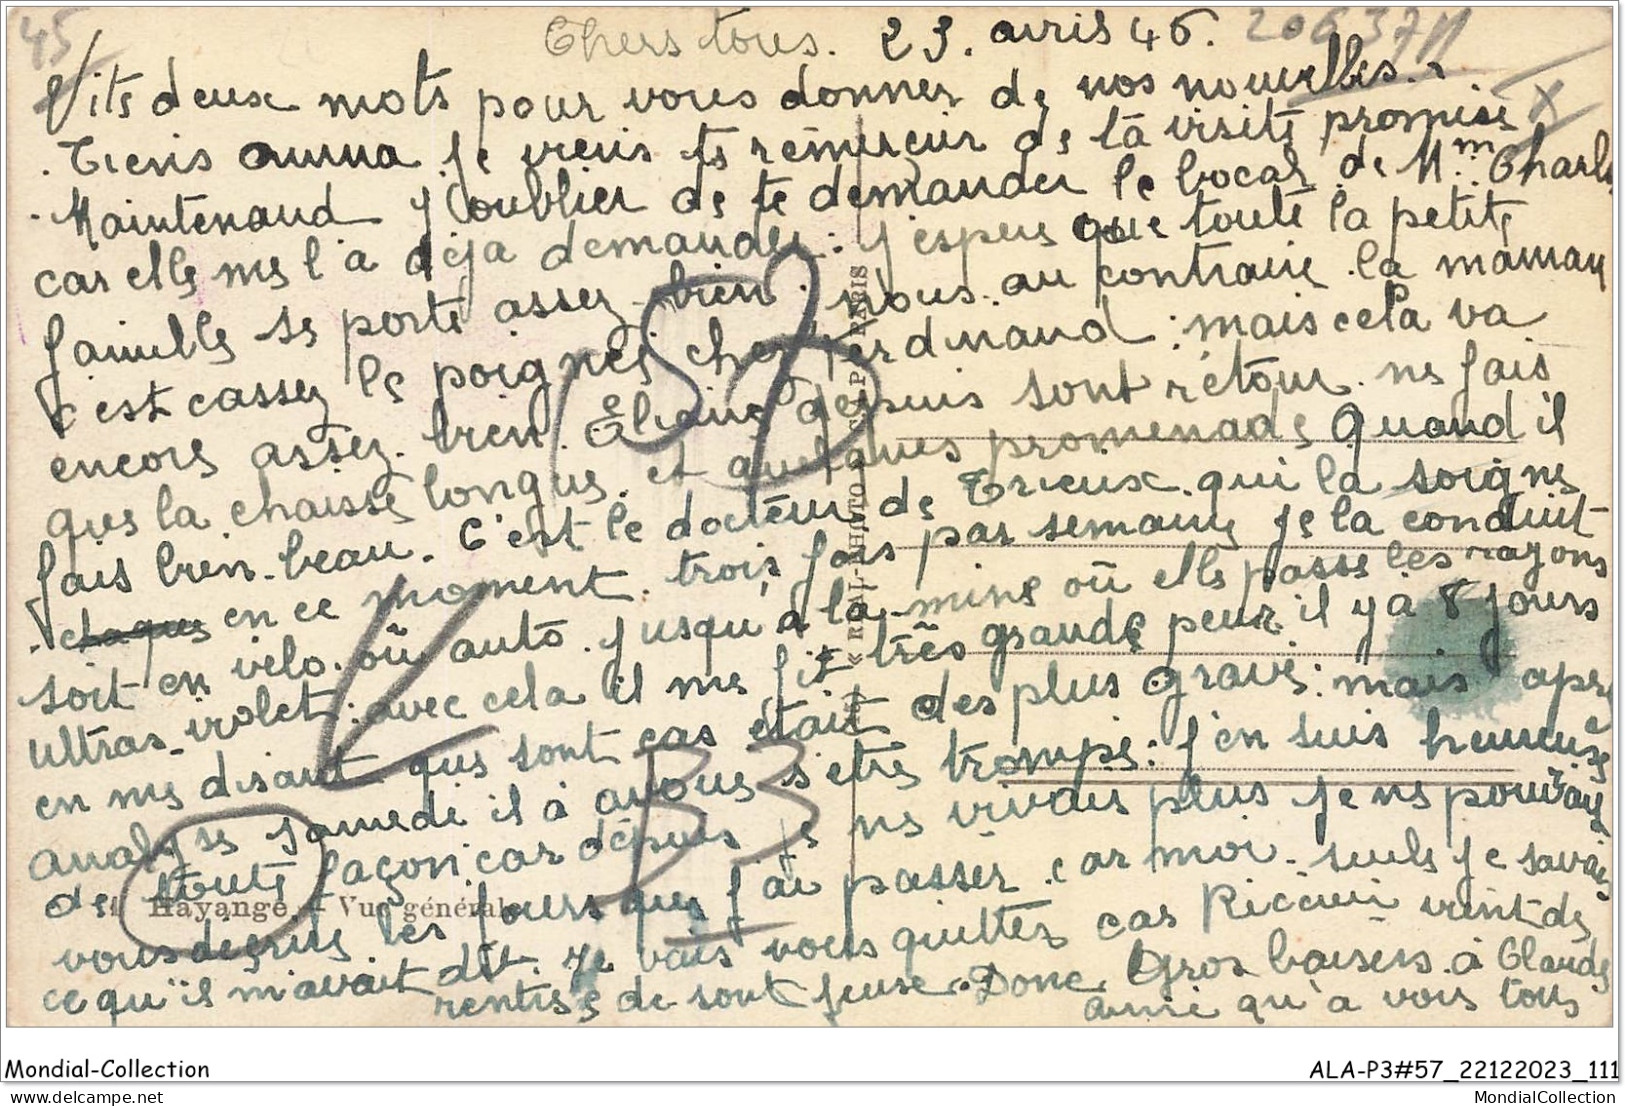 45
Chers tous. 23. avris 46. 2063711
Vite deux mots pour vous donner de nos nouvelles.
. Tiens Anna je viens te rémercier de ta visite promise
. Maintenand j'oublier de te demander le bocal de Mm Charle
car elle me l'a déja demander: j'espere que toute la petite
famille se porte assez bien. nous au contraire la maman
c'est cassez le poignet chez Ferdinand: mais cela va
encore assez bien. Eliane depuis sont rétour ne fais
que la chaisse longue et quelques promenade quand il
fais bien beau. C'est le docteur de Trieux qui la soigne
en ce moment. trois fois par semaine je la conduit
soit en velo. où auto. jusqu'à la mine où elle passe les rayons
ultras-violet: avec cela il me fit très grande peur. il y a 8 jours
en me disant que sont cas était des plus grave: mais apré
analyse samedi il à avoué s'etre trompé: j'en suis heureuse
de toute façon car dépuis je ne vivais plus je ne pouvais
vous decrire les jours que j'ai passer. car moi-seule je savais
ce qu'il m'avait dit. Je vais vous quitter car vient de
rentre de sont Donc Gros baisers à Claude
ainsi qu'a vous tous
4 Hayange — Vue générale
« REAL-PHOTO » C. A. P. PARIS
Mondial-Collection
ALA-P3#57_22122023_111
www.mondialcollection.com
MondialCollection.com